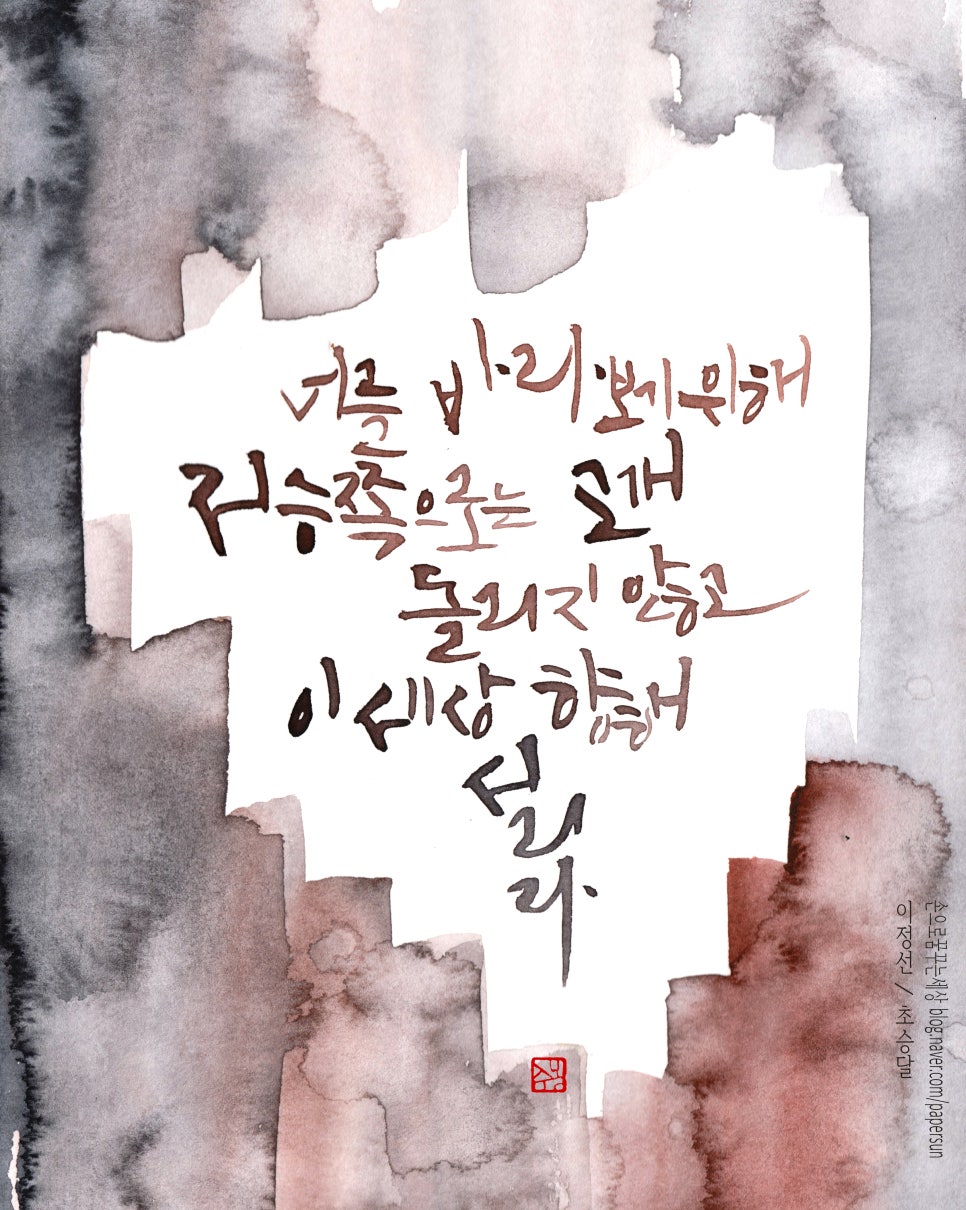 너를 바라보기 위해
저승쪽으로는 고개
돌리지 않고
이 세상 향해
서리
라.
손으로꿈꾸는세상 blog.naver.com/papersun
이정선 / 초승달